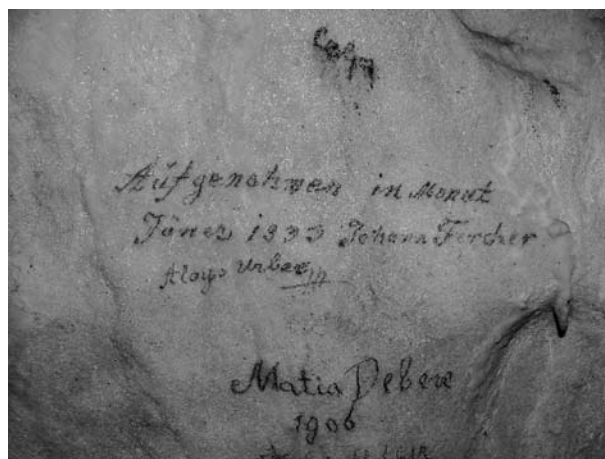 Aufgenohmen in Monat
Jäner 1833 Johann Fercher
Aloys Urbas
Matia Debeve
1906